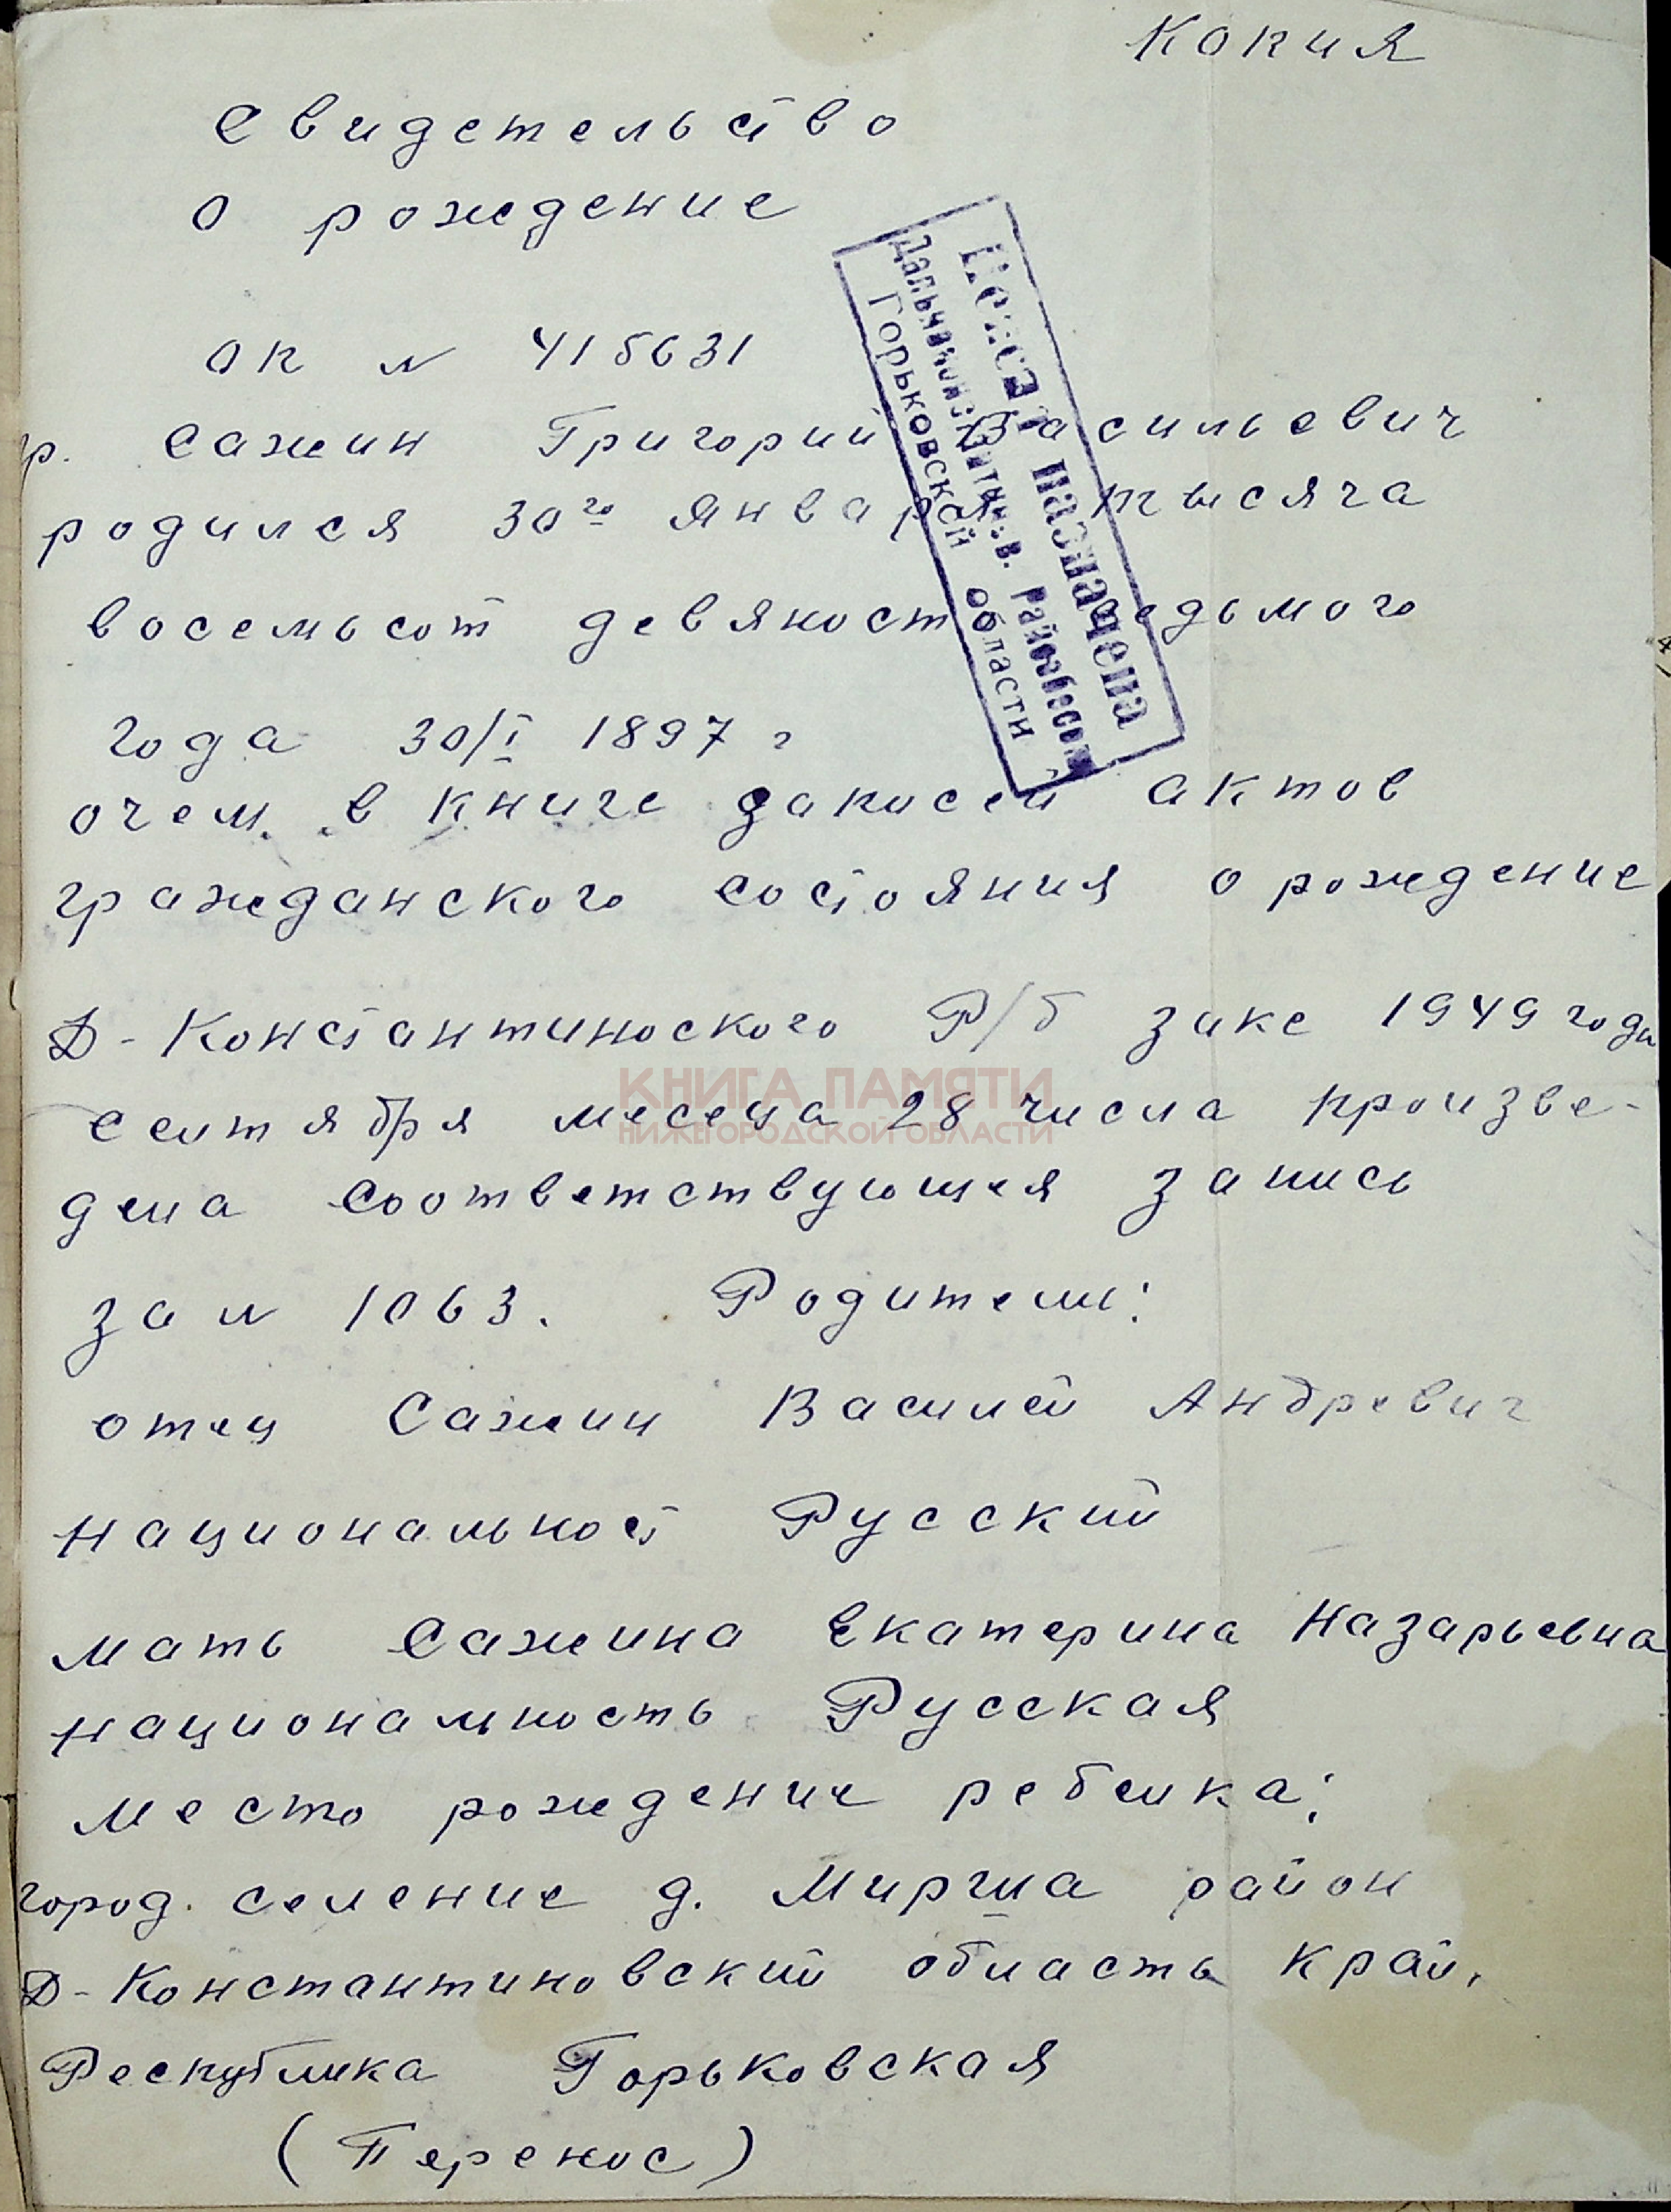 Копия
Свидетельство
о рождение
ОК N 415631
р. Сажин Григорий Васильевич
родился 30го января тысяча
восемьсот девяност седьмого
года 30/I 1897 г
очем в книге записей актов
гражданского состояния о рождение
Д-Константиноского Р/б загсе 1949 года
сентября месеца 28 числа произве-
дена соответствующея запись
за N 1063. Родители:
отец Сажин Василей Андревич
национальност Русский
мать Сажина Екатерина Назарьевна
национальность Русская
место рождение ребенка:
город. селение д. Мирша район
Д-Константиновский область край,
Республика Горьковская
(Перенос)
Пенсия назначена
Дальнеконстантинов. райсобесом
Горьковской области
КНИГА ПАМЯТИ
НИЖЕГОРОДСКОЙ ОБЛАСТИ